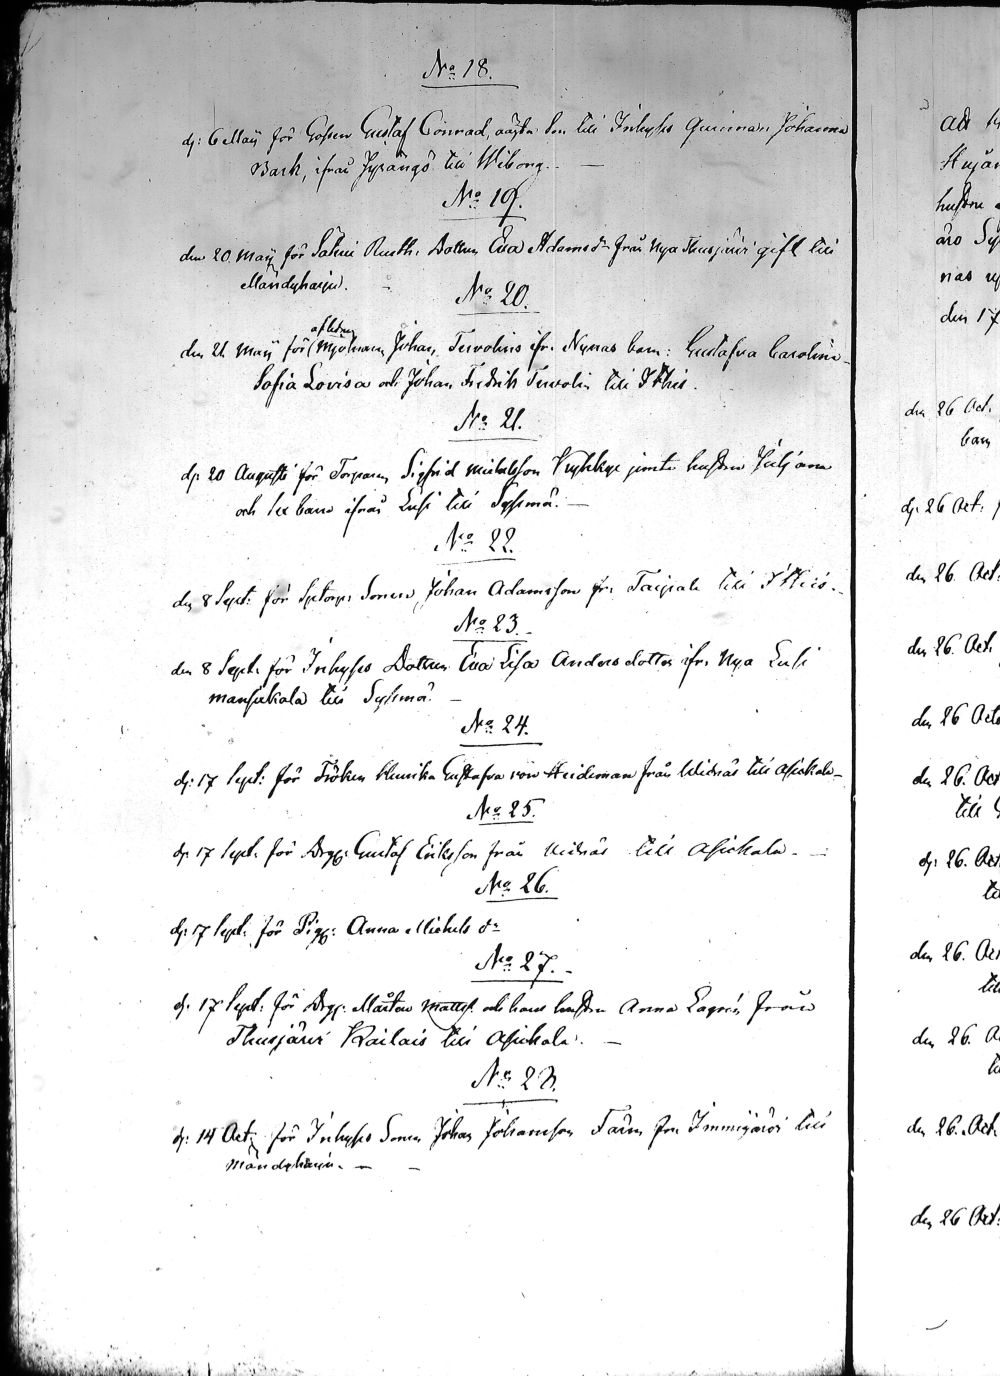 No 18.
d: 6 Maij för Gossen Gustaf Conrad, oägta Son till Inhyses Quinnan Johanna
Bark, ifrån Jyrängö till Wiborg. —
No 19.
den 20 Maij för Dottren Eva Adams dr från Nya Thusjärvi gift till
Mändyharju.
No 20.
afledne
den 21 Maij för Mjölnaren Johan Tervolins ifr. Nynas barn: Gustafva Carolina
Sofia Lovisa och Johan Fredrik Tervolin till Ithis.
No 21.
d: 20 Augusti för Torparen Sigfrid Michelsson jemte hustru Juljana
och sex barn ifrån Lusi till Sysmä. —
No 22.
den 8 Sept: för Sonen Johan Adamsson fr. Taipale till Ithis. -
No 23.
den 8 Sept. för Inhyses Dottren Eva Lisa Anders dotter ifr. Nya Lusi
mansikala till Sysmä. —
No 24.
d: 17 Sept: för Fröken Ulrika Gustafva von Heideman från Uldnäs till Asickala –
No 25.
d: 17 Sept. för Drg: Gustaf Eriksson från till Asickala. —
No 26.
d: 17 Sept. för Pig: Anna Michels dr
No 27. -
d. 17 Sept: för Drg: Mårten Matts. och hans hustru Anna från
Thusjärvi Kailais till Asickala. —
No 28.
d: 14 Oct. för Inhyses Sonen Johan Johansson Färm fr. Immijärvi till
Mändyharju. — –
den 17
den 26 Oct.
barn
d: 26 Oct:
den 26. Oct:
den 26. Oct.
den 26 Octo
den 26. Oct
till
d: 26. Oct
den 26. Oct
den 26. O
den 26. Oct.
den 26 Oct: